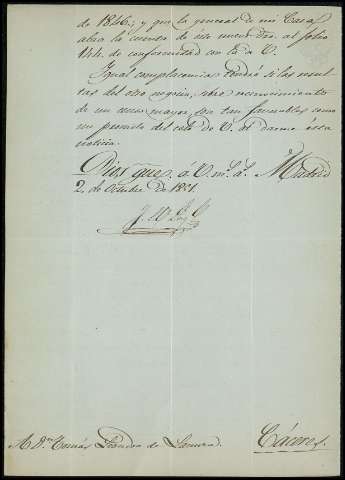 de 1846; y que la general de mi Casa
abra la cuenta de este nuestro al folio
de conformidad con la de V.
Igual complacencia tendré si las
del otro negocio, sobre reconocimiento
de un censo mayor, son tan favorables como
me promete del celo de V. al darme ésta
noticia.
Dios gue. á V. ms. as. Madrid
2 de Octubre de 1851.
A Dn. Tomás de
Cáceres.